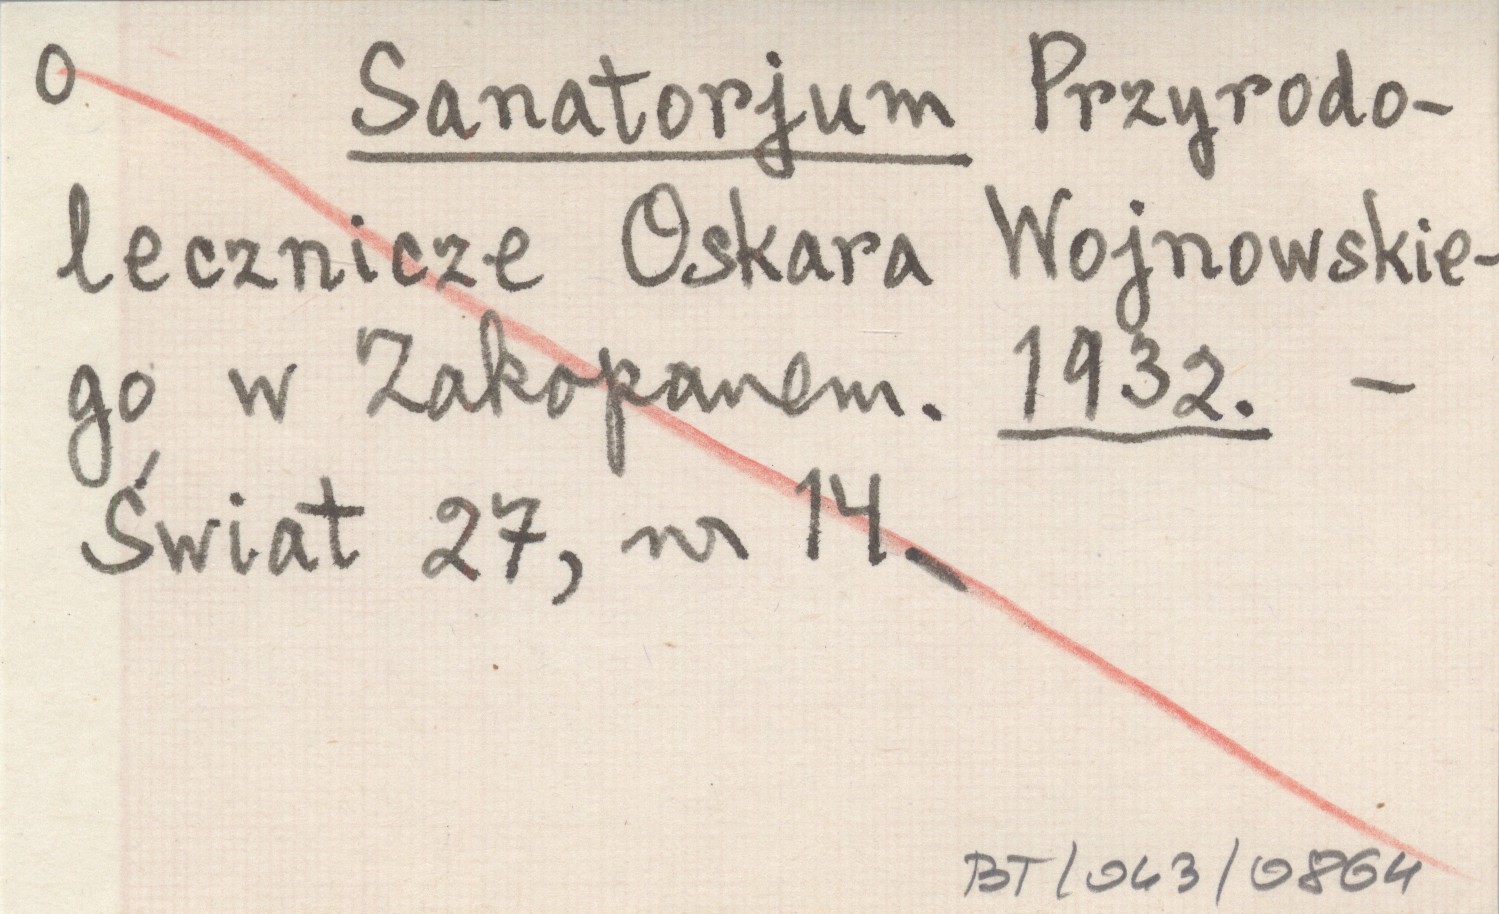 O Sanatorjum Przyrodo-
lecznicze Oskara Wojnowskie-
go w Zakopanem. 1932. -
Świat 27, nr 14.
BT/043/0864